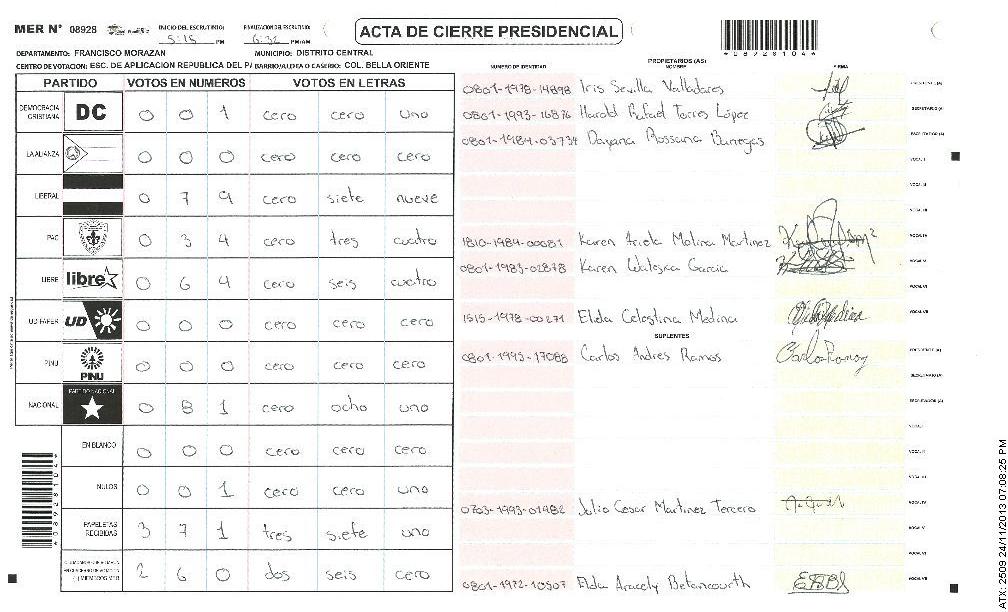 MER N° 08928 INICIO DEL ESCRUTINIO: 5:15 PM FINALIZACION DEL ESCRUTINIO: 6:32 PM/AM
ACTA DE CIERRE PRESIDENCIAL
DEPARTAMENTO: FRANCISCO MORAZAN MUNICIPIO: DISTRITO CENTRAL
CENTRO DE VOTACION: ESC. DE APLICACION REPUBLICA DEL P/ BARRIO/ALDEA O CASERIO: COL. BELLA ORIENTE
PARTIDO VOTOS EN NUMEROS VOTOS EN LETRAS
DEMOCRACIA CRISTIANA DC 0 0 1 cero cero uno
LA ALIANZA 0 0 0 cero cero cero
LIBERAL 0 7 9 cero siete nueve
PAC 0 3 4 cero tres cuatro
LIBRE libre 0 6 4 cero seis cuatro
UD FAPER UD 0 0 0 cero cero cero
PINU PINU 0 0 0 cero cero cero
NACIONAL PARTIDO NACIONAL 0 8 1 cero ocho uno
EN BLANCO 0 0 0 cero cero cero
NULOS 0 0 1 cero cero uno
PAPELETAS RECIBIDAS 3 7 1 tres siete uno
2 6 0 dos seis cero
NUMERO DE IDENTIDAD PROPIETARIOS (AS) NOMBRE FIRMA
0801-1978-14898 Iris Sevilla Valladares PRESIDENTE (A)
0801-1993-16876 Harold Rafael Torres López SECRETARIO (A)
0801-1984-03734 Dayana Rossana Banegas ESCRUTADOR (A)
VOCAL I
VOCAL II
VOCAL III
1810-1984-00081 Karen Ariela Molina Martinez VOCAL IV
0801-1983-02878 Karen Waleska Garcia VOCAL V
VOCAL VI
1515-1978-00271 Elda Celestina Medina VOCAL VII
SUPLENTES
0801-1993-17088 Carlos Andres Ramos PRESIDENTE (A)
SECRETARIO (A)
ESCRUTADOR (A)
VOCAL I
VOCAL II
VOCAL III
0703-1993-01482 Julio Cesar Martinez Tercero VOCAL IV
VOCAL V
VOCAL VI
0801-1972-10507 Elda Aracely Betancourth VOCAL VII
*089281046*
ATX: 2509 24/11/2013 07:08:25 PM